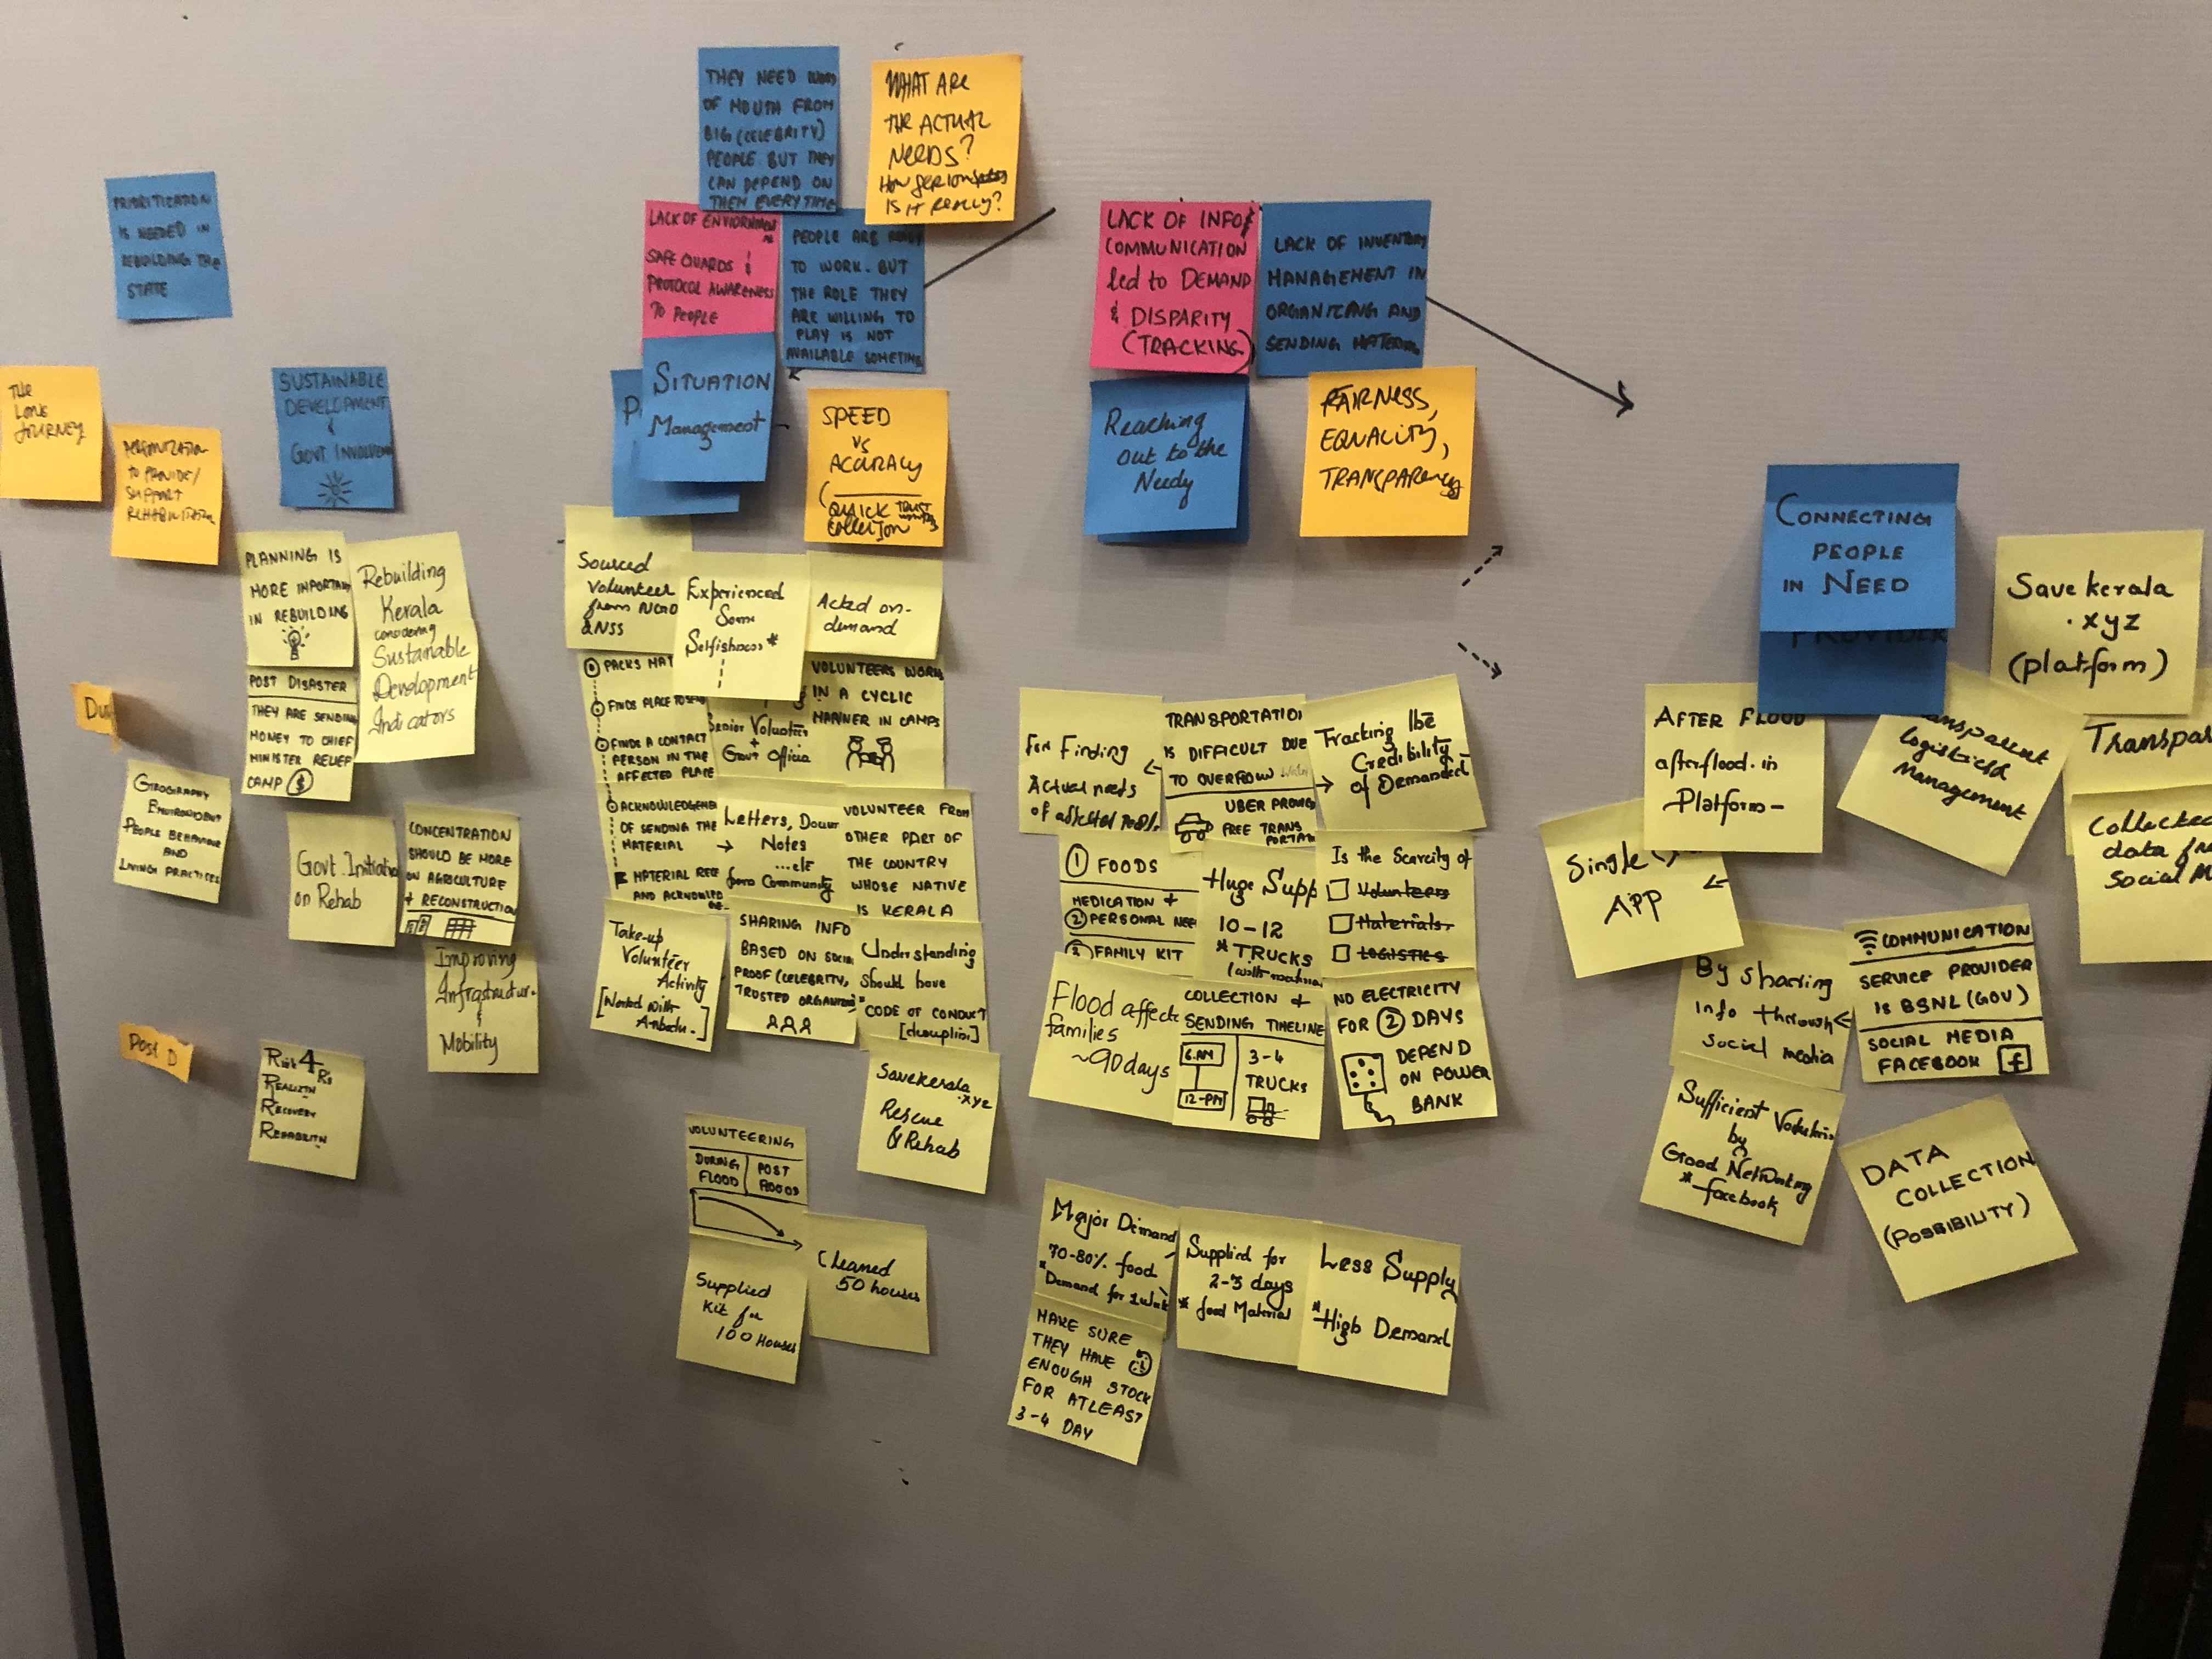 PRIORITIZATION
IS NEEDED IN
REBUILDING THE
STATE
THE
LONG
JOURNEY
TO PROVIDE/
SUPPORT
REHABILITATION
SUSTAINABLE
DEVELOPMENT
&
GOVT INVOLVEMENT
PLANNING IS
MORE IMPORTANT
IN REBUILDING
Rebuilding
Kerala
considering
Sustainable
Development
Indicators
POST DISASTER
THEY ARE SENDING
MONEY TO CHIEF
MINISTER RELIEF
CAMP $
GEOGRAPHY
ENVIRONMENT
PEOPLE BEHAVIOUR
AND
LIVING PRACTICES
Govt. Initiation
on Rehab
CONCENTRATION
SHOULD BE MORE
ON AGRICULTURE
+ RECONSTRUCTION
Improving
Infrastructur.
&
Mobility
Post D
4
R's
RECOVERY
THEY NEED WORD
OF MOUTH FROM
BIG (CELEBRITY)
PEOPLE BUT THEY
CAN DEPEND ON
THEM EVERYTIME
WHAT ARE
THE ACTUAL
NEEDS?
HOW SERIOUS
IS IT REALLY?
LACK OF
SAFEGUARDS &
PROTOCOL AWARENESS
TO PEOPLE
PEOPLE ARE READY
TO WORK. BUT
THE ROLE THEY
ARE WILLING TO
PLAY IS NOT
AVAILABLE SOMETIME
SITUATION
Management
SPEED
VS
ACCURACY
QUICK TRUST
Sourced
Volunteer
from NGO
& NSS
Experienced
Some
Selfishness*
Acted on-
demand
PACKS MAT
FINDS PLACE TO SEND
FINDS A CONTACT
PERSON IN THE
AFFECTED PLACE
ACKNOWLEDGEME
OF SENDING THE
MATERIAL
MATERIAL RECE
AND ACKNOWLED
GE-
Senior Volunteer
+
Govt Officia
VOLUNTEERS WORK
IN A CYCLIC
MANNER IN CAMPS
→ Letters,
Notes
...etc
from Community
VOLUNTEER FROM
OTHER PART OF
THE COUNTRY
WHOSE NATIVE
IS KERALA
Take-up
Volunteer
Activity
[Worked with
Anbodu-]
SHARING INFO
BASED ON SOCIAL
PROOF (CELEBRITY,
TRUSTED ORGANIZATION)
Understanding
should have
"CODE OF CONDUCT"
Savekerala
.xyz
Rescue
& Rehab
VOLUNTEERING
DURING
FLOOD
POST
FLOODS
Supplied
Kit for
100 Houses
Cleaned
50 houses
LACK OF INFO &
COMMUNICATION
led to DEMAND
& DISPARITY
(TRACKING)
LACK OF INVENTORY
MANAGEMENT IN
ORGANIZING AND
SENDING MATERIAL
Reaching
out to the
Needy
FAIRNESS,
EQUALITY,
TRANSPARENCY
For Finding
Actual needs
of affected people
TRANSPORTATIO
IS DIFFICULT DUE
TO OVERFLOW Water
UBER PROVIDE
FREE TRANS
PORTAT
Tracking the
Credibility
of Demanded
1 FOODS
MEDICATION +
2 PERSONAL NEE
3 FAMILY KIT
Huge Supp
10-12
* TRUCKS
Is the Scarcity of
Volunteers
Materials
LOGISTICS
Flood affecte
families
~90 days
COLLECTION &
SENDING TIMELINE
6.AM
12-PM
3-4
TRUCKS
NO ELECTRICITY
FOR 2 DAYS
DEPEND
ON POWER
BANK
Major Demand
70-80% food
* Demand for 1 week
Supplied for
2-3 days
* food Material
Less Supply
*High Demand
MAKE SURE
THEY HAVE
ENOUGH STOCK
FOR ATLEAST
3-4 DAY
CONNECTING
PEOPLE
IN NEED
PROVIDER
Savekerala
.xyz
(platform)
AFTER FLOOD
afterflood.in
Platform-
ansparent
Logistics &
Management
Transpar
Collected
data from
Social M
Single
APP
By sharing
info through
social media
COMMUNICATION
SERVICE PROVIDER
IS BSNL (GOV)
SOCIAL MEDIA
FACEBOOK f
Sufficient
by
Good Networking
* facebook
DATA
COLLECTION
(POSSIBILITY)